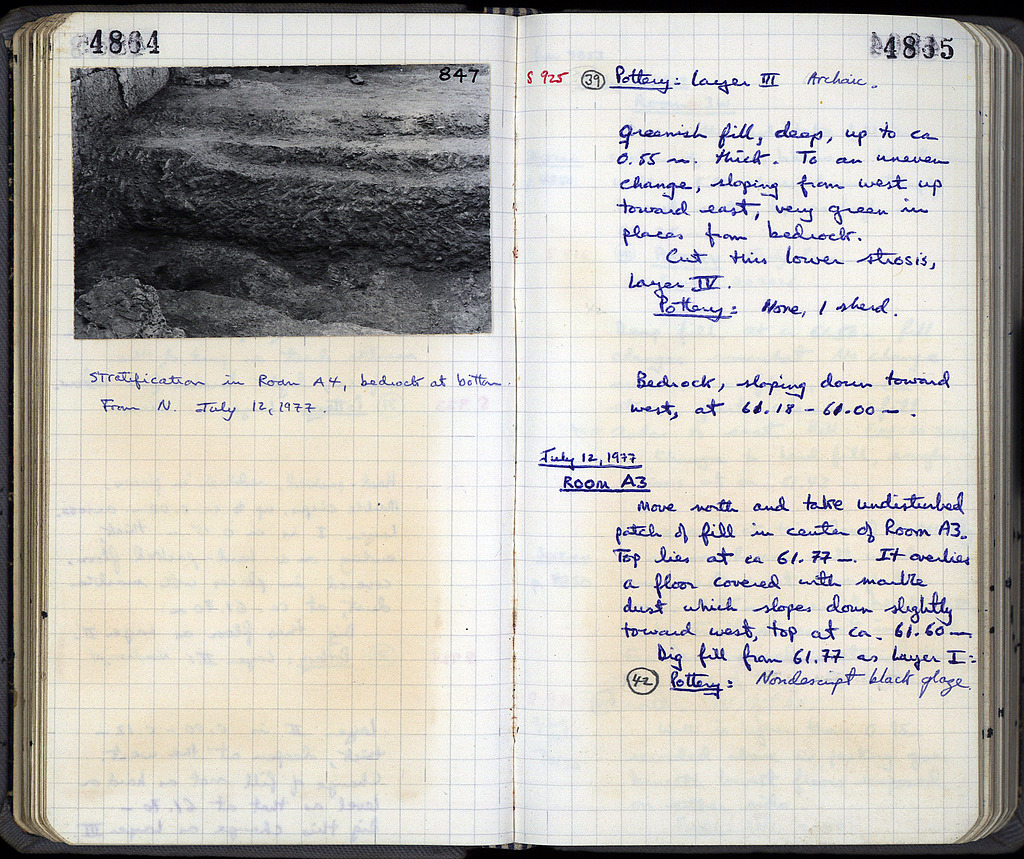 4864
847
Stratification in Room A4, bedrock at bottom.
From N. July 12, 1977.
4865
S 925 (39) Pottery: Layer III Archaic.
greenish fill, deep, up to ca
0.55 m. thick. To an uneven
change, sloping from west up
toward east, very green in
places from bedrock.
Cut this lower strosis,
Layer IV.
Pottery: None, 1 sherd.
Bedrock, sloping down toward
west, at 61.18 - 61.00 m.
July 12, 1977
ROOM A3
Move north and take undisturbed
patch of fill in center of Room A3.
Top lies at ca 61.77 m. It overlies
a floor covered with marble
dust which slopes down slightly
toward west, top at ca. 61.60 m
Dig fill from 61.77 as Layer I:
(42) Pottery: Nondescript black glaze.